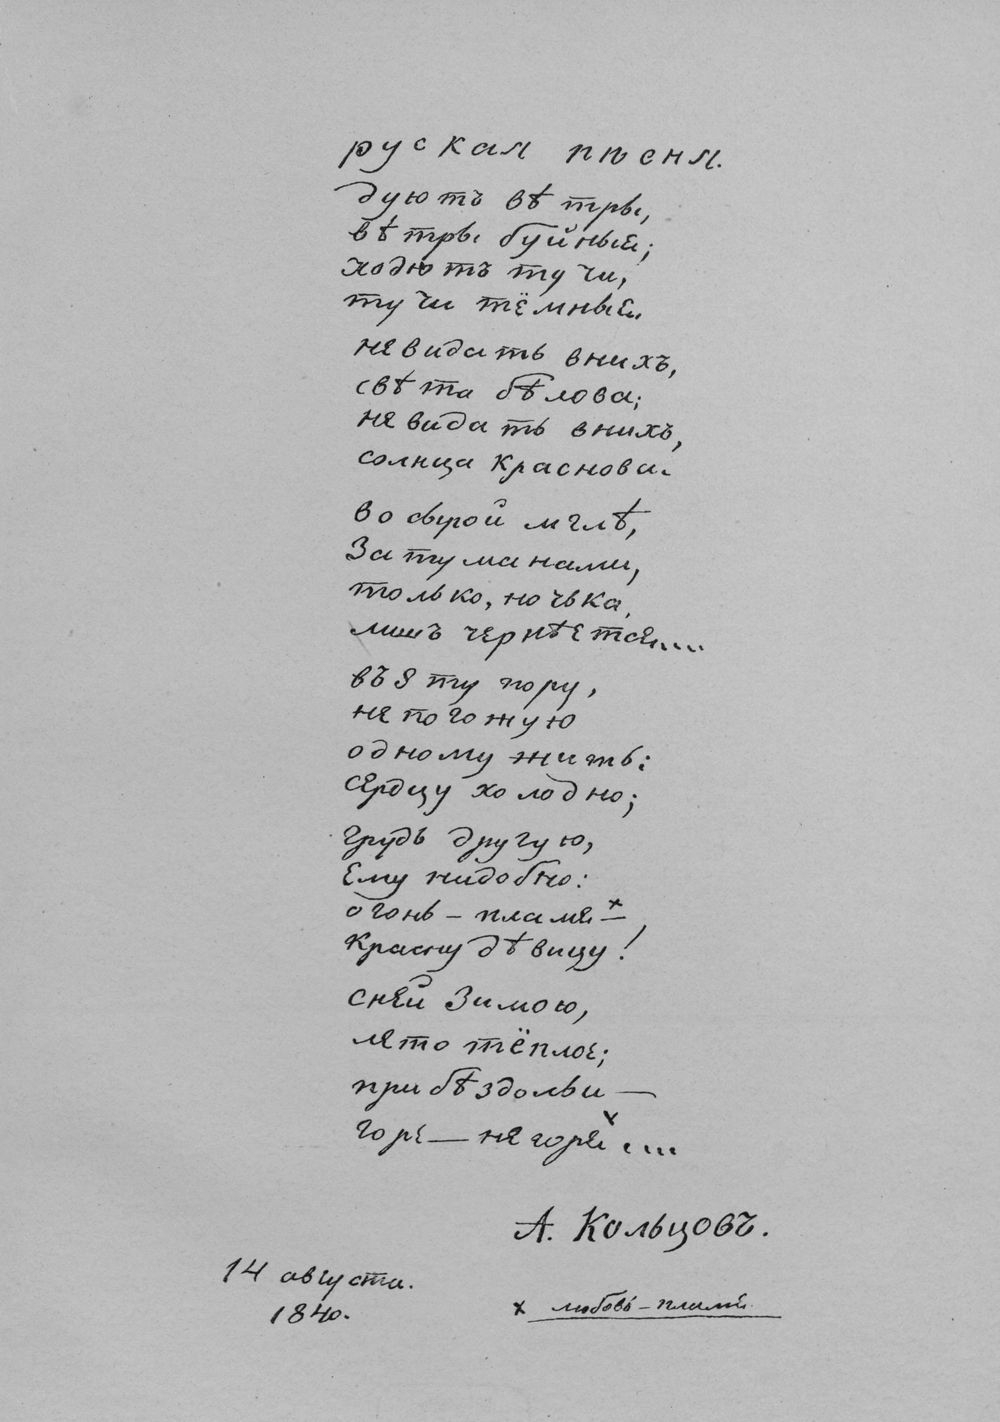 руская пѣсня.
дуютъ вѣтры,
вѣтры буйные;
ходютъ тучи,
тучи тёмные.
не видать внихъ,
свѣта бѣлова;
не видать внихъ,
солнца краснова.
во сырой мглѣ,
За туманами,
только, ночька,
лишъ чернѣется....
въ эту пору,
не погожую
одному жить:
сердцу холодно;
грудь другую,
Ему надобно:
огонь – пламя x –,
Красну дѣвицу!
сней Зимою,
лето тёплое;
при бѣздольи —
горе — не горе x ....
А. Кольцовъ.
14 августа.
1840.
x любовь – пламя.